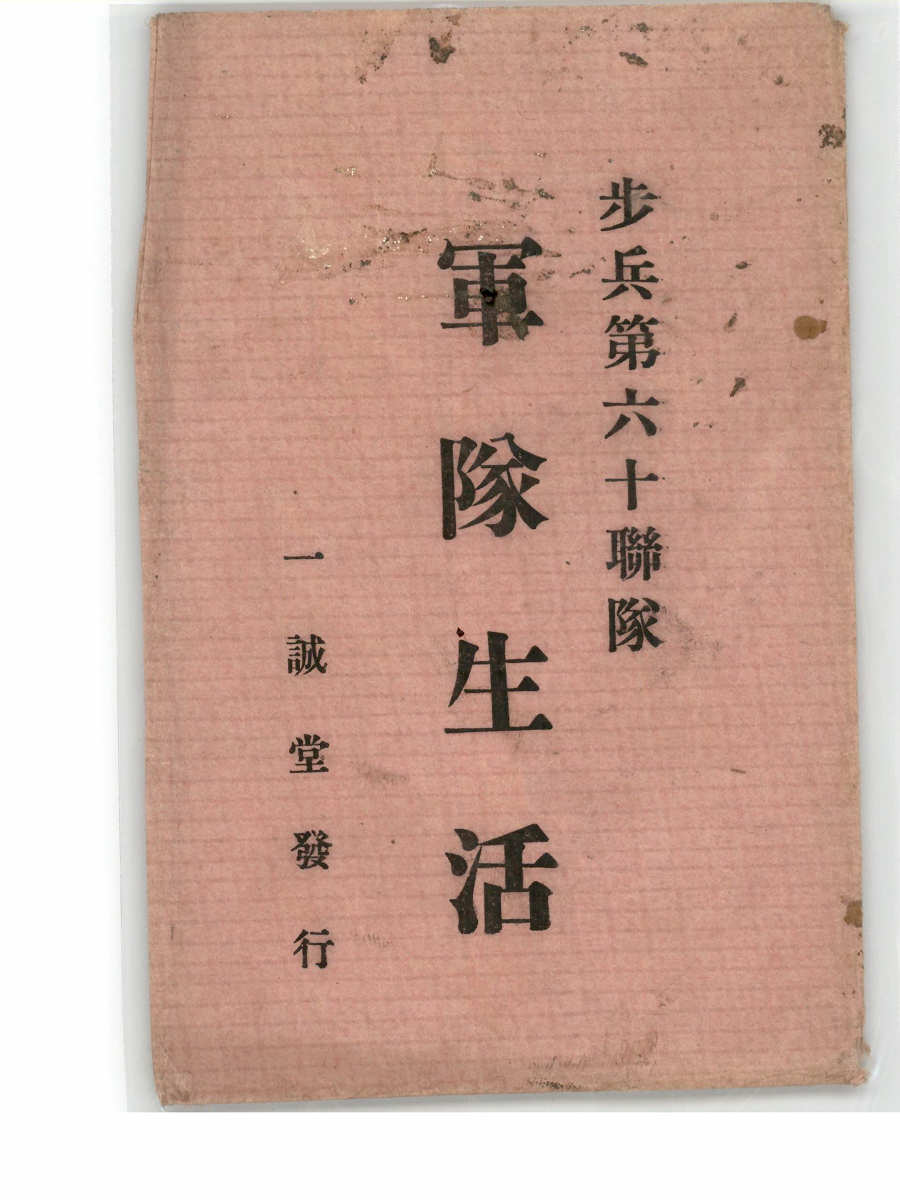 步兵第六十聯隊
軍隊生活
一誠堂發行